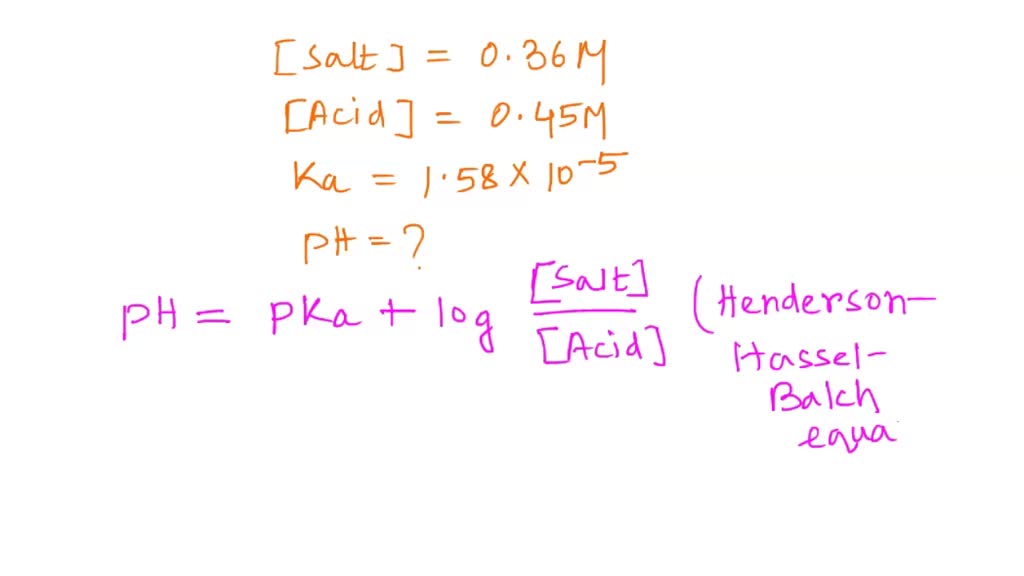 [Salt] = 0.36M
[Acid] = 0.45M
Ka = 1.58 × 10⁻⁵
pH = ?
pH = pKa + log [Salt]/[Acid] (Henderson-
Hassel-
Balch
equa